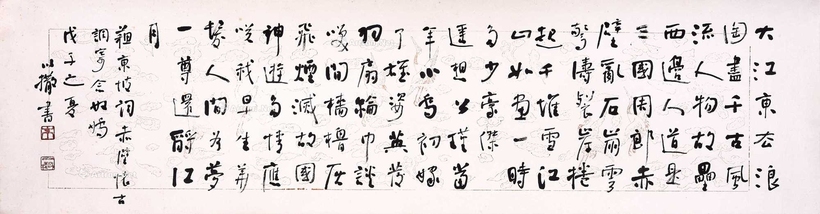 大江東去浪
淘盡千古風
流人物故壘
西邊人道是
三國周郎赤
壁亂石崩雲
驚濤裂岸捲
起千堆雪江
山如畫一時
多少豪傑
遙想公瑾當
年小喬初嫁
了雄姿英發
羽扇綸巾談
笑間檣櫓灰
飛煙滅故國
神遊多情應
笑我早生華
髮人間夢
一尊還酹江
月
蘇東坡詞赤壁懷古
調寄念奴嬌
戊子之夏
以撒書